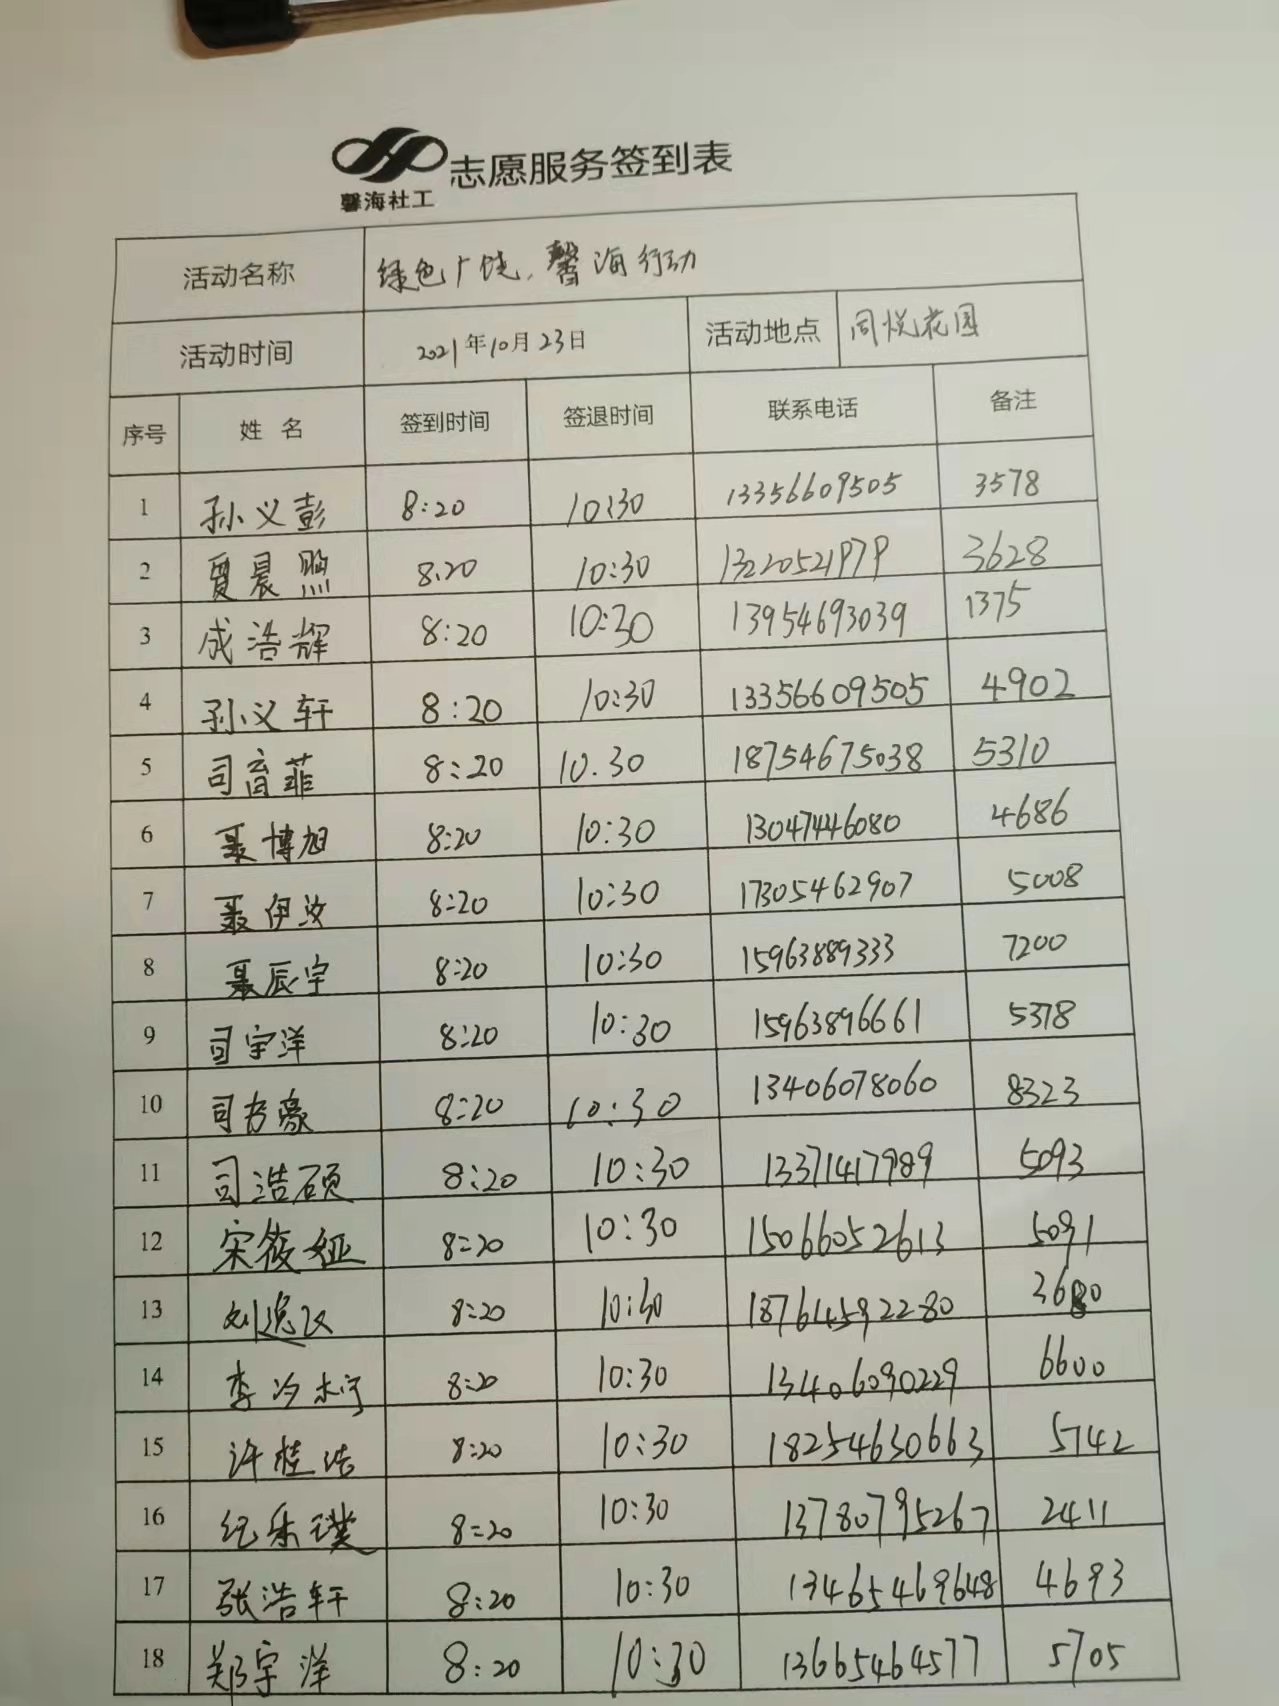 馨海社工
志愿服务签到表
活动名称 绿色广饶,馨海行动
活动时间 2021年10月23日 活动地点 同悦花园
序号 姓 名 签到时间 签退时间 联系电话 备注
1 孙义彭 8:20 10:30 13356609505 3578
2 贾晨煦 8:20 10:30 13220521979 3628
3 成浩辉 8:20 10:30 13954693039 1375
4 孙义轩 8:20 10:30 13356609505 4902
5 司育菲 8:20 10.30 18754675038 5310
6 聂博旭 8:20 10:30 13047446080 4686
7 聂伊汝 8:20 10:30 17305462907 5008
8 聂辰宇 8:20 10:30 15963889333 7200
9 司宇洋 8:20 10:30 15963896661 5378
10 司方豪 8:20 10:30 13406078060 8323
11 司浩硕 8:20 10:30 13371417989 5093
12 宋筱娅 8:20 10:30 15066052613 5091
13 刘逸汉 8:20 10:30 18764592280 3680
14 李 8:20 10:30 13406090229 6600
15 许桂浩 8:20 10:30 18254630663 5742
16 纪乐璞 8:20 10:30 13780795267 2411
17 张浩轩 8:20 10:30 13465469648 4693
18 郑宇洋 8:20 10:30 13665464577 5705